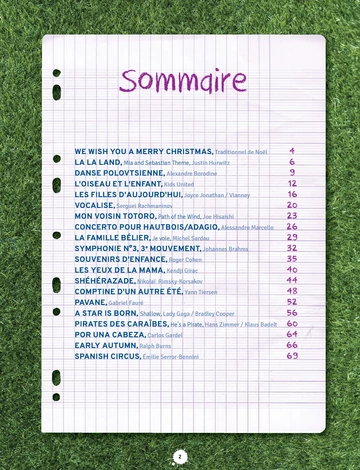 Sommaire
WE WISH YOU A MERRY CHRISTMAS, Traditionnel de Noël 4
LA LA LAND, Mia and Sebastian Theme, Justin Hurwitz 6
DANSE POLOVTSIENNE, Alexandre Borodine 9
L'OISEAU ET L'ENFANT, Kids United 12
LES FILLES D'AUJOURD'HUI, Joyce Jonathan / Vianney 16
VOCALISE, Sergueï Rachmaninov 20
MON VOISIN TOTORO, Path of the Wind, Joe Hisaishi 23
CONCERTO POUR HAUTBOIS/ADAGIO, Alessandro Marcello 26
LA FAMILLE BÉLIER, Je vole, Michel Sardou 29
SYMPHONIE N°3, 3e MOUVEMENT, Johannes Brahms 32
SOUVENIRS D'ENFANCE, Roger Cohen 35
LES YEUX DE LA MAMA, Kendji Girac 40
SHÉHÉRAZADE, Nikolaï Rimsky-Korsakov 44
COMPTINE D'UN AUTRE ÉTÉ, Yann Tiersen 48
PAVANE, Gabriel Fauré 52
A STAR IS BORN, Shallow, Lady Gaga / Bradley Cooper 56
PIRATES DES CARAÏBES, He's a Pirate, Hans Zimmer / Klaus Badelt 60
POR UNA CABEZA, Carlos Gardel 64
EARLY AUTUMN, Ralph Burns 66
SPANISH CIRCUS, Émilie Serror-Bennini 69
2